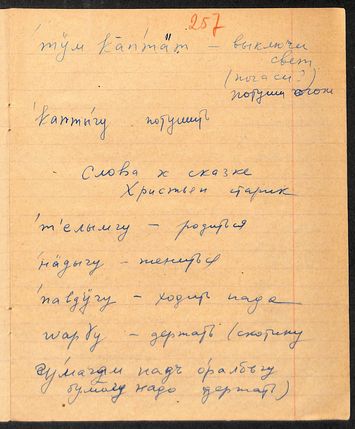 257
тӱм ка̄птӓт – выключи
свет
(погаси?)
потуши огонь
каптыгу потушить
Слова к сказке
Христьен старик
т'елымгу – родиться
на́дыгу – жениться
павдӱгу – ходить надо
warгу – держать (скотину
надъ оралбыгу
бумагу надо держать)